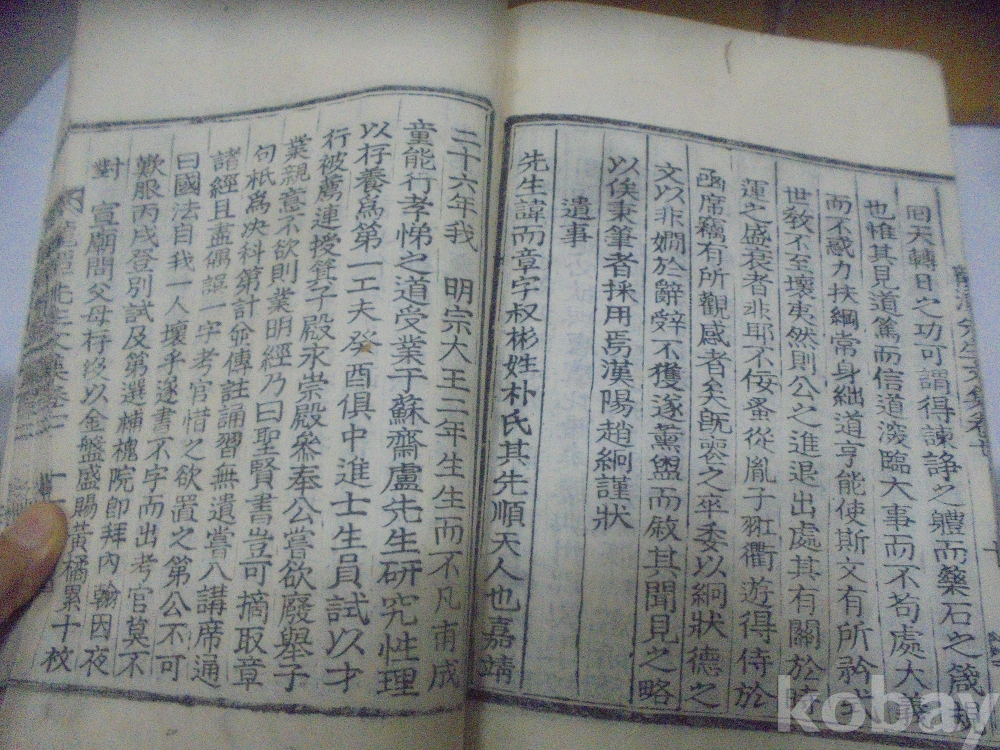 回天轉日之功可謂得諫諍之體而藥石之箴規
也惟其見道篤而信道深臨大事而不苟處大義
而不惑力扶綱常身絀道亨能使斯文有所矜式
世敎不至壞夷然則公之進退出處其有關於時
運之盛衰者非耶不佞蚤從胤子羾衢遊得侍於
函席竊有所觀感者矣旣喪之卒委以絅狀德之
文以非嫺於辭辝不獲遂薰盥而敘其聞見之略
以俟秉筆者採用焉漢陽趙絅謹狀
遺事
先生諱而章字叔彬姓朴氏其先順天人也嘉靖
二十六年我 明宗大王二年生生而不凡甫成
童能行孝悌之道受業于蘇齋盧先生硏究性理
以存養爲第一工夫癸酉俱中進士生員試以才
行被薦連授雙子殿永崇殿叅奉公嘗欲廢擧子
業親意不欲則業明經乃曰聖賢書豈可摘取章
句柢爲决科第計爺傳註誦習無遺嘗入講席通
諸經且盡偶誤一字考官惜之欲置之第公不可
曰國法自我一人壞乎遂書不字而出考官莫不
歎服丙戌登別試及第選補槐院卽拜內翰因夜
對 宣廟問父母存歿以金盤盛賜黃橘累十枚
龍潭先生文集卷
kobay